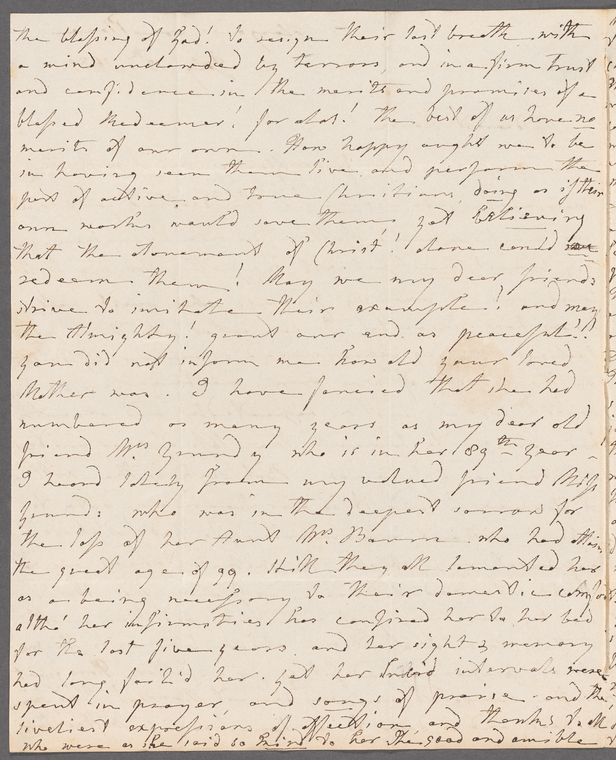 the blessing of God! to resign their last breath with
a mind unclouded by terrors and in a firm trust
and confidence in the merits and promises of a
blessed Redeemer! for alas! the best of us have no
merits of our own. How happy ought we to be
in having seen them live and perform the
part of active and true Christians, doing as if their
own works would save them, yet believing
that the atonement of Christ! alone could
redeem them! May we my dear friends
strive to imitate their example! and may
the Almighty! grant our end as peaceful!!
you did not inform me how old your loved
Mother was. I have fancied that she had
numbered as many years as my dear old
friend Mrs who is in her 89th year -
I heard lately from my valued friend Miss
who was in the deepest sorrow for
the loss of her Aunt Mrs who had attain
the great age of 99. Still they all lamented her
as a being necessary to their domestic comfort
altho' her infirmities has confined her to her bed
for the last five years and her sight & memory
had long fail'd her. yet her lucid intervals were
spent in prayer, and songs of praise. and the
liveliest expressions of affection and thanks to all
who were as she said so kind to her the good and amiable